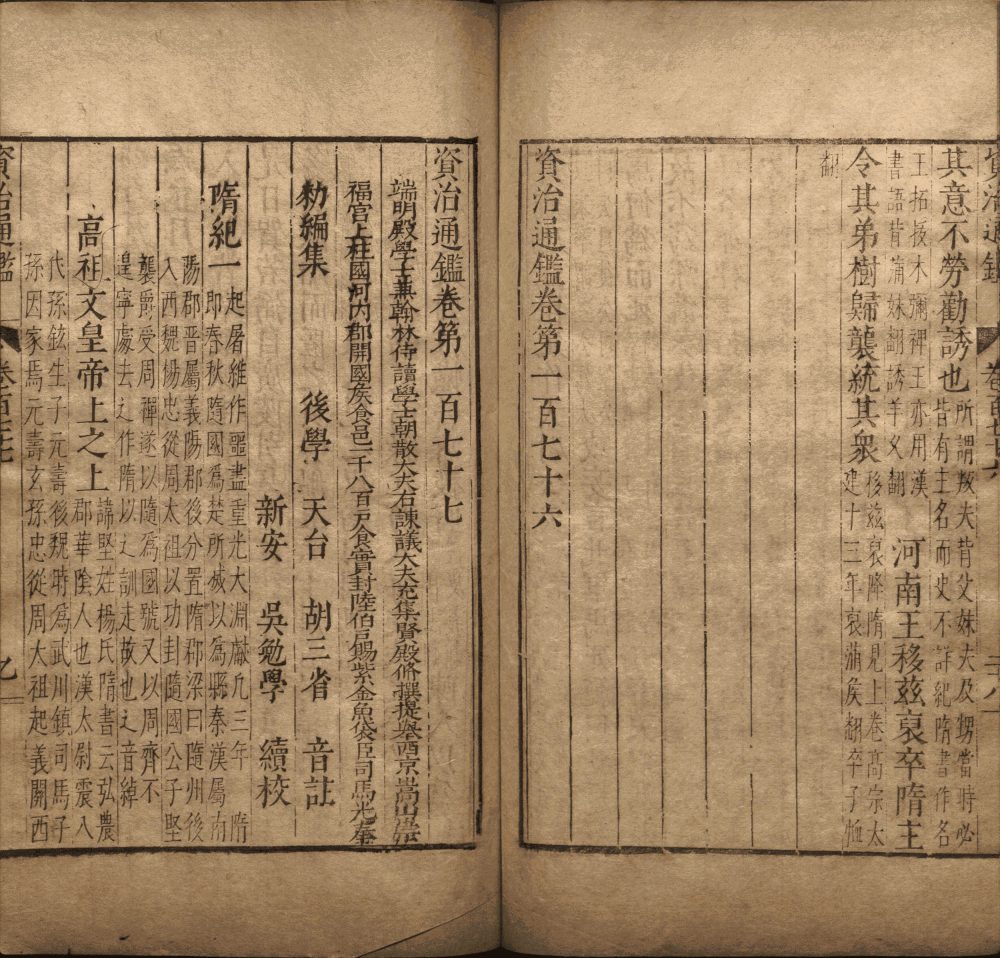 資治通鑑 卷一百七十六
其意不勞勸誘也所謂叛夫背父妹夫及甥當時必
皆有主名而史不詳紀隋書作名
王拓拔木彌裨王亦用漢
書語背蒲妹翻誘羊乂翻
河南王移茲裒卒隋主
令其弟樹歸襲統其衆移茲裒降隋見上卷高宗太
建十三年裒蒲矦翻卒子恤
翻
資治通鑑卷第一百七十六
資治通鑑卷第一百七十七
端明殿學士兼翰林侍讀學士朝散大夫右諫議大夫充集賢殿脩撰提舉西京嵩山崇
福宫上柱國河内郡開國矦食邑一千八百户食實封陸伯户賜紫金魚袋臣司馬光奉
勑編集 後學 天台 胡三省 音註
新安 吳勉學 續校
隋紀一 起屠維作噩盡重光大淵獻凡三年 隋
即春秋隨國爲楚所滅以爲縣秦漢屬南
陽郡晉屬義陽郡後分置隋郡梁曰隨州後
入西魏楊忠從周太祖以功封隨國公子堅
襲爵受周禪遂以隨爲國號又以周齊不
遑寧處去辵作隋以辵訓走故也辵音綽
高祖文皇帝上之上諱堅姓楊氏隋書云弘農
郡華陰人也漢太尉震八
代孫鉉生子元壽後魏時爲武川鎮司馬子
孫因家焉元壽玄孫忠從周太祖起義關西
資治通鑑